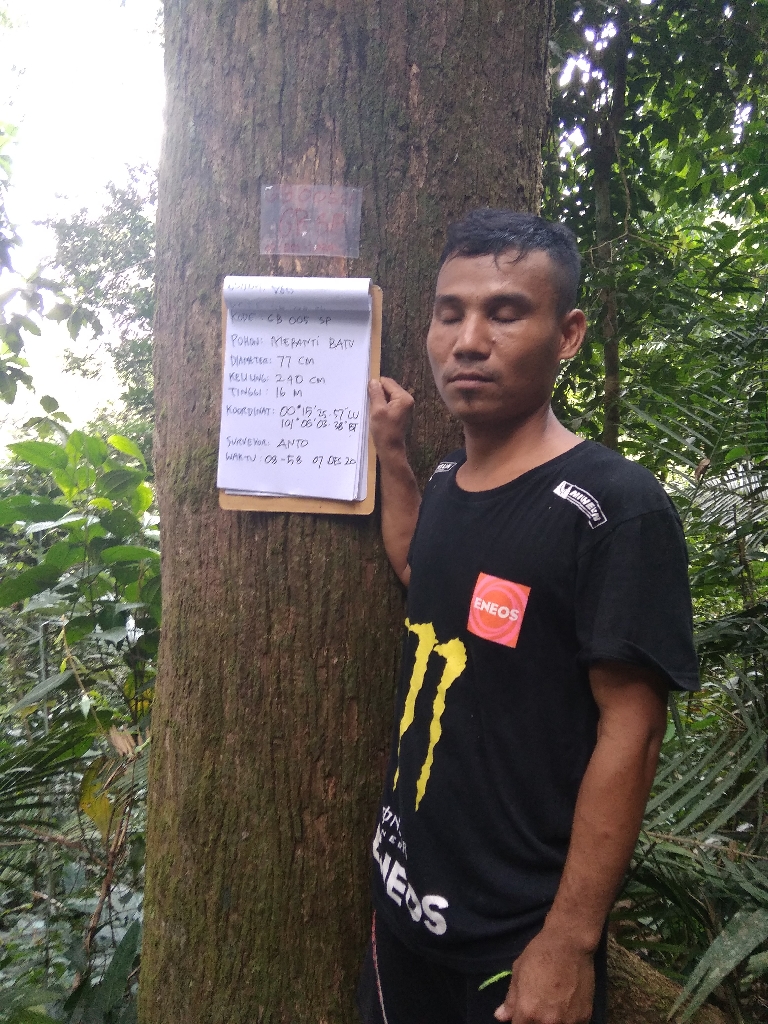 KODE : CB 005 SP
POHON: MERANTI BATU
DIAMETER: 77 CM
KELILING: 240 CM
TINGGI: 16 M
KOORDINAT: 00° 15' 25.57" LU
101° 06' 03.38" BT
SURVEYOR: ANTO
WAKTU: 08-58 07 DES 20
ENEOS
ENEOS